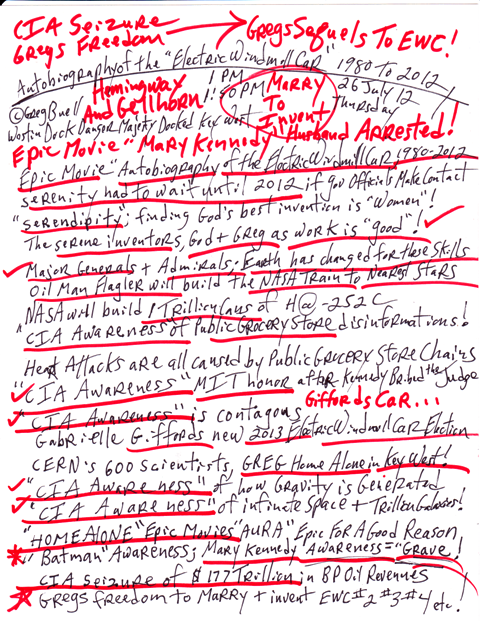 CIA Seizure
Gregs Freedom
Gregs Sequels To EWC!
Autobiography of the "Electric Windmill Car" 1980 To 2012
Hemingway
And Gellhorn!
1 PM
80°
Marry
To
Invent
26 July 12
Thursday
@Greg Buell
Westin Dock Danger Majesty Docked Key West
Husband Arrested!
Epic Movie "Mary Kennedy
Epic Movie "Autobiography of the Electric Windmill Car 1980-2012
serenity had to wait until 2012 if gov Officials Make Contact
"Serendipity"; finding God's best invention is "Women"!
The serene inventors, God + Greg as work is "good"!
Major Generals + Admirals; Earth has changed for these Skills
Oil Man Flagler will build the NASA Train to Nearest Stars
NASA will build 1 Trillion Cans of H@-252C
"CIA Awareness of Public Grocery Store disinformations!
Heart Attacks are all caused by Public Grocery Store Chains
"CIA Awareness" MIT honor after Kennedy Bribed the Judge
Giffords Car...
"CIA Awareness" is contagous
Gabrielle Giffords new 2013 Electric Windmill Car Election
CERN's 600 scientists, GREG Home Alone in Key West!
"CIA Awareness" of how Gravity is Generated
"CIA Awareness" of infinite Space + Trillion Galaxies!
"HOME ALONE" "Epic Movies" AURA" Epic For A Good Reason
"Batman" Awareness; Mary Kennedy Awareness = "Grave!
CIA seizure of $177 Trillion in BP Oil Revenues
Gregs freedom to Marry + invent EWC #2 #3 #4 etc.